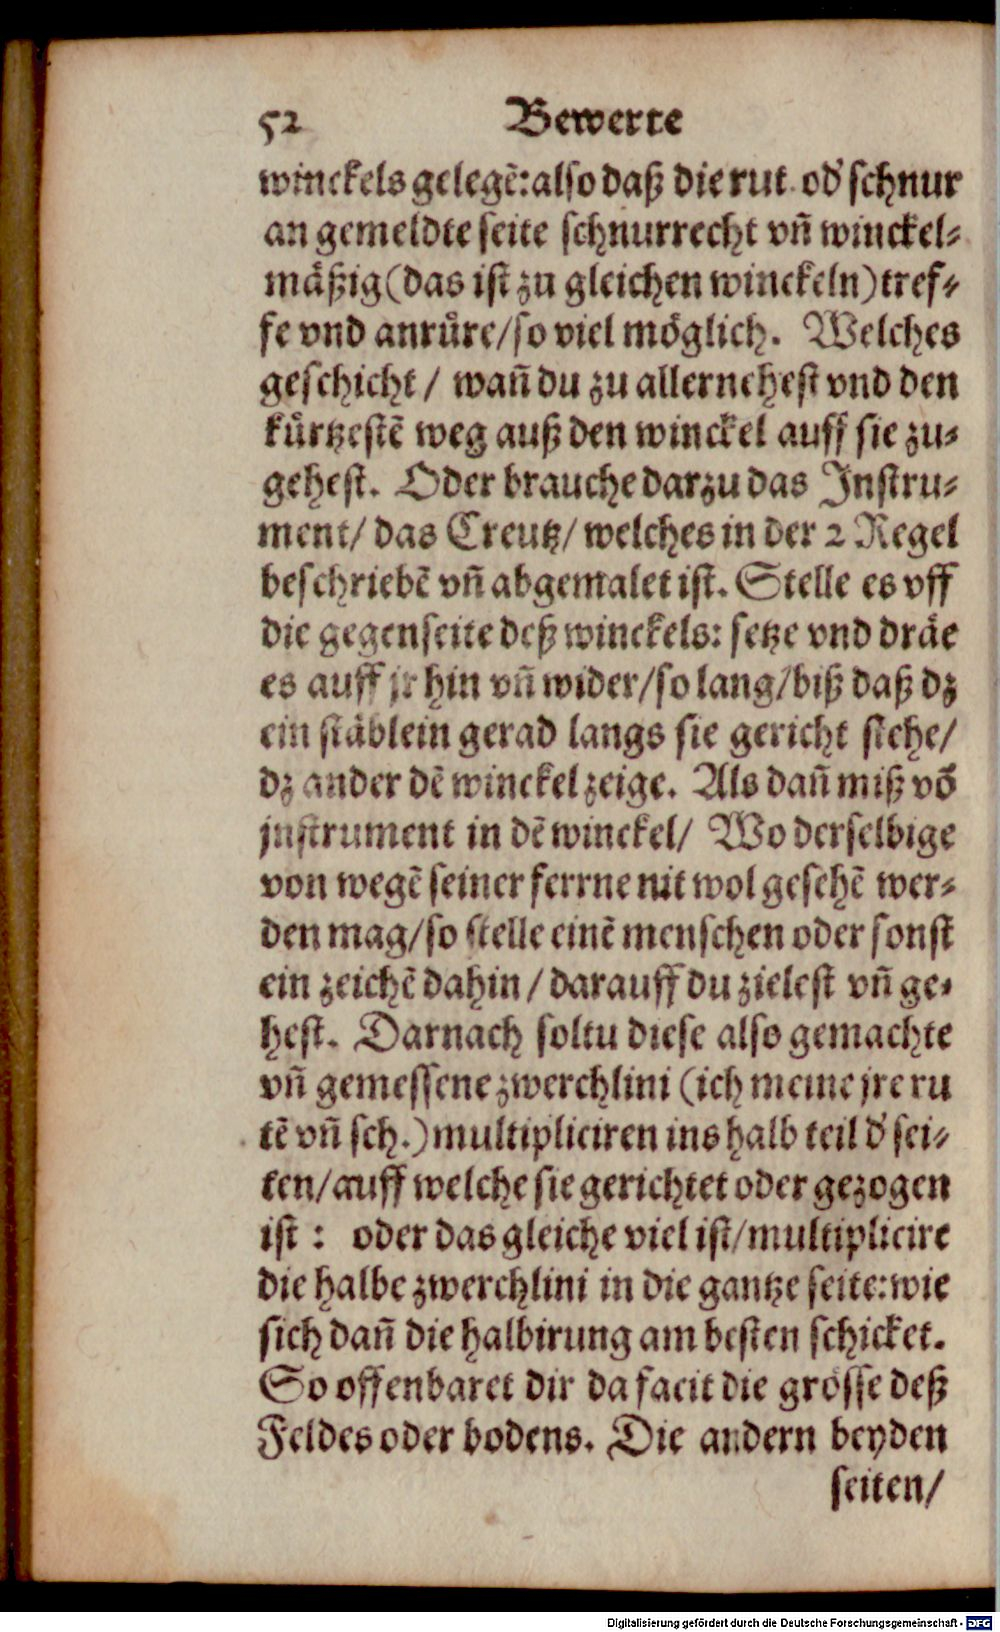 52 Bewerte
winckels gelegẽ: also daß die rut od' schnur
an gemeldte seite schnurrecht vñ winckel⸗
mäßig (das ist zu gleichen winckeln) tref⸗
fe vnd anrüre/ so viel möglich. Welches
geschicht/ wañ du zu allernehest vnd den
kürtzestẽ weg auß den winckel auff sie zu⸗
gehest. Oder brauche darzu das Instru⸗
ment/ das Creutz/ welches in der 2 Regel
beschriebẽ vñ abgemalet ist. Stelle es vff
die gegenseite deß winckels: setze vnd dräe
es auff jr hin vñ wider/ so lang/ biß daß dz
ein stäblein gerad langs sie gericht stehe/
dz ander dẽ winckel zeige. Als dañ miß võ
jnstrument in dẽ winckel/ Wo derselbige
von wegẽ seiner ferrne nit wol gesehẽ wer⸗
den mag/ so stelle einẽ menschen oder sonst
ein zeichẽ dahin/ darauff du zielest vñ ge⸗
hest. Darnach soltu diese also gemachte
vñ gemessene zwerchlini (ich meine jre ru
tẽ vñ sch.) multipliciren ins halb teil d' sei⸗
ten/ auff welche sie gerichtet oder gezogen
ist: oder das gleiche viel ist/ multiplicire
die halbe zwerchlini in die gantze seite: wie
sich dañ die halbirung am besten schicket.
So offenbaret dir da facit die grösse deß
Feldes oder bodens. Die andern beyden
seiten/
Digitalisierung gefördert durch die Deutsche Forschungsgemeinschaft - DFG